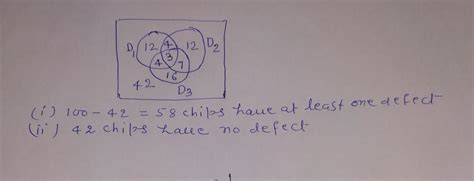 D1 12 4 12 D2
3
4 7
16
42 D3
(i) 100 - 42 = 58 chips have at least one defect
(ii) 42 chips have no defect